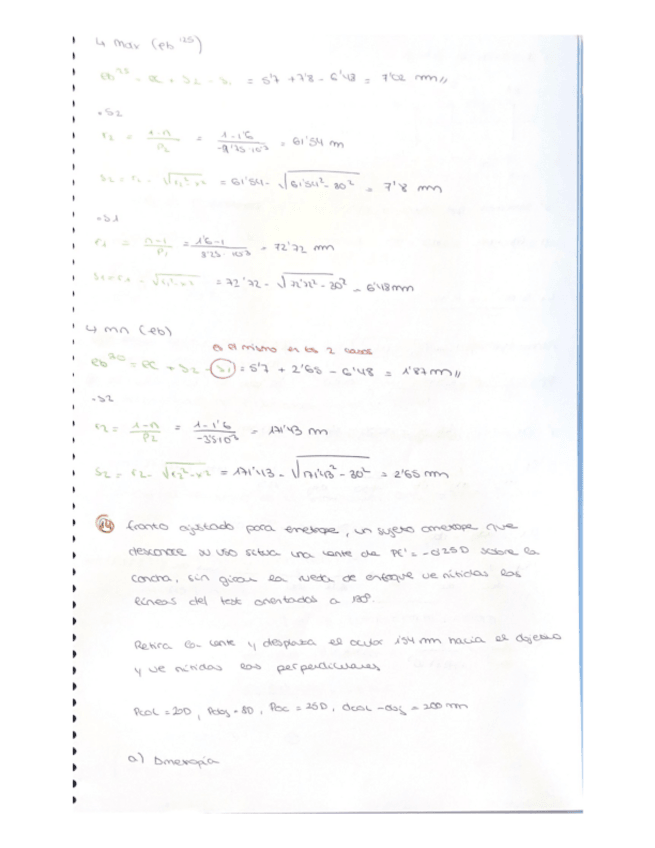 ↳ max (eb¹²⁵)
eb¹²⁵ = ec + s2 - s1 = 5'7 + 7'8 - 6'48 = 7'02 mm//
• s2
r2 = 1-n / P2 = 1-1'6 / -9'75·10³ = 61'54 m
s2 = r2 - √r2²-x² = 61'54 - √61'54²-30² = 7'8 mm
• s1
r1 = n-1 / P1 = 1'6-1 / 8'25·10³ = 72'72 mm
s1 = r1 - √r1²-x² = 72'72 - √72'72²-30² = 6'48mm
↳ mn (eb)
es el mismo en los 2 casos
eb²⁰ = ec + s2 - s1 = 5'7 + 2'65 - 6'48 = 1'87mm//
• s2
r2 = 1-n / P2 = 1-1'6 / -3'5·10³ = 171'43 m
s2 = r2 - √r2²-x² = 171'43 - √171'43²-30² = 2'65 mm
14 fronto ajustado para emetrope, un sujeto ametrope que
desconoce su uso situa una lente de PC' = -0'25D sobre la
concha, sin girar la rueda de enfoque ve nítidas las
líneas del test orientadas a 180º.
Retira la lente y desplaza el ocular 1'54 mm hacia el objetivo
y ve nítidas las perpendiculares
Pcol = 20D, Pobj = 8D, Poc = 25D, dcol-obj = 200 mm
a) Ametropia